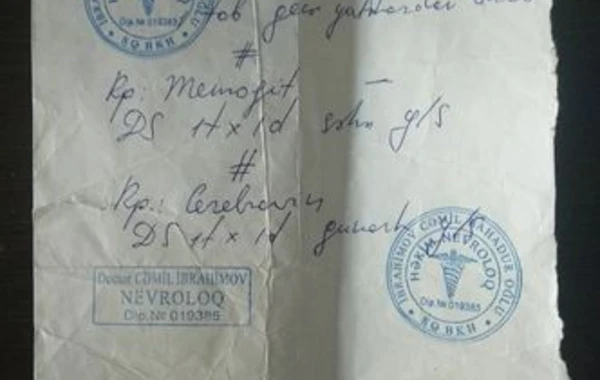 Dip.№ 019385
SQ BKH
gecə yatmazdan
#
Rp: Memogit
DS 1t x 1d səhər y/s
#
Rp.: Cerebravin
DS 1t x 1d günorta y/s
Doctor CƏMİL İBRAHİMOV
NEVROLOQ
Dip.№ 019385
İBRAHİMOV CƏMİL BAHADUR OĞLU
HƏKİM NEVROLOQ
Dip.№ 019385
SQ BKH